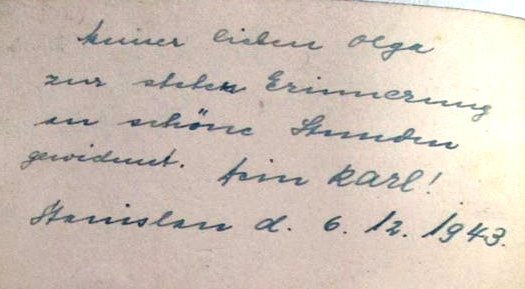 meiner lieben Olga
zur steten Erinnerung
an schöne Stunden
gewidmet. Dein Karl!
Stanislau d. 6. 12. 1943.